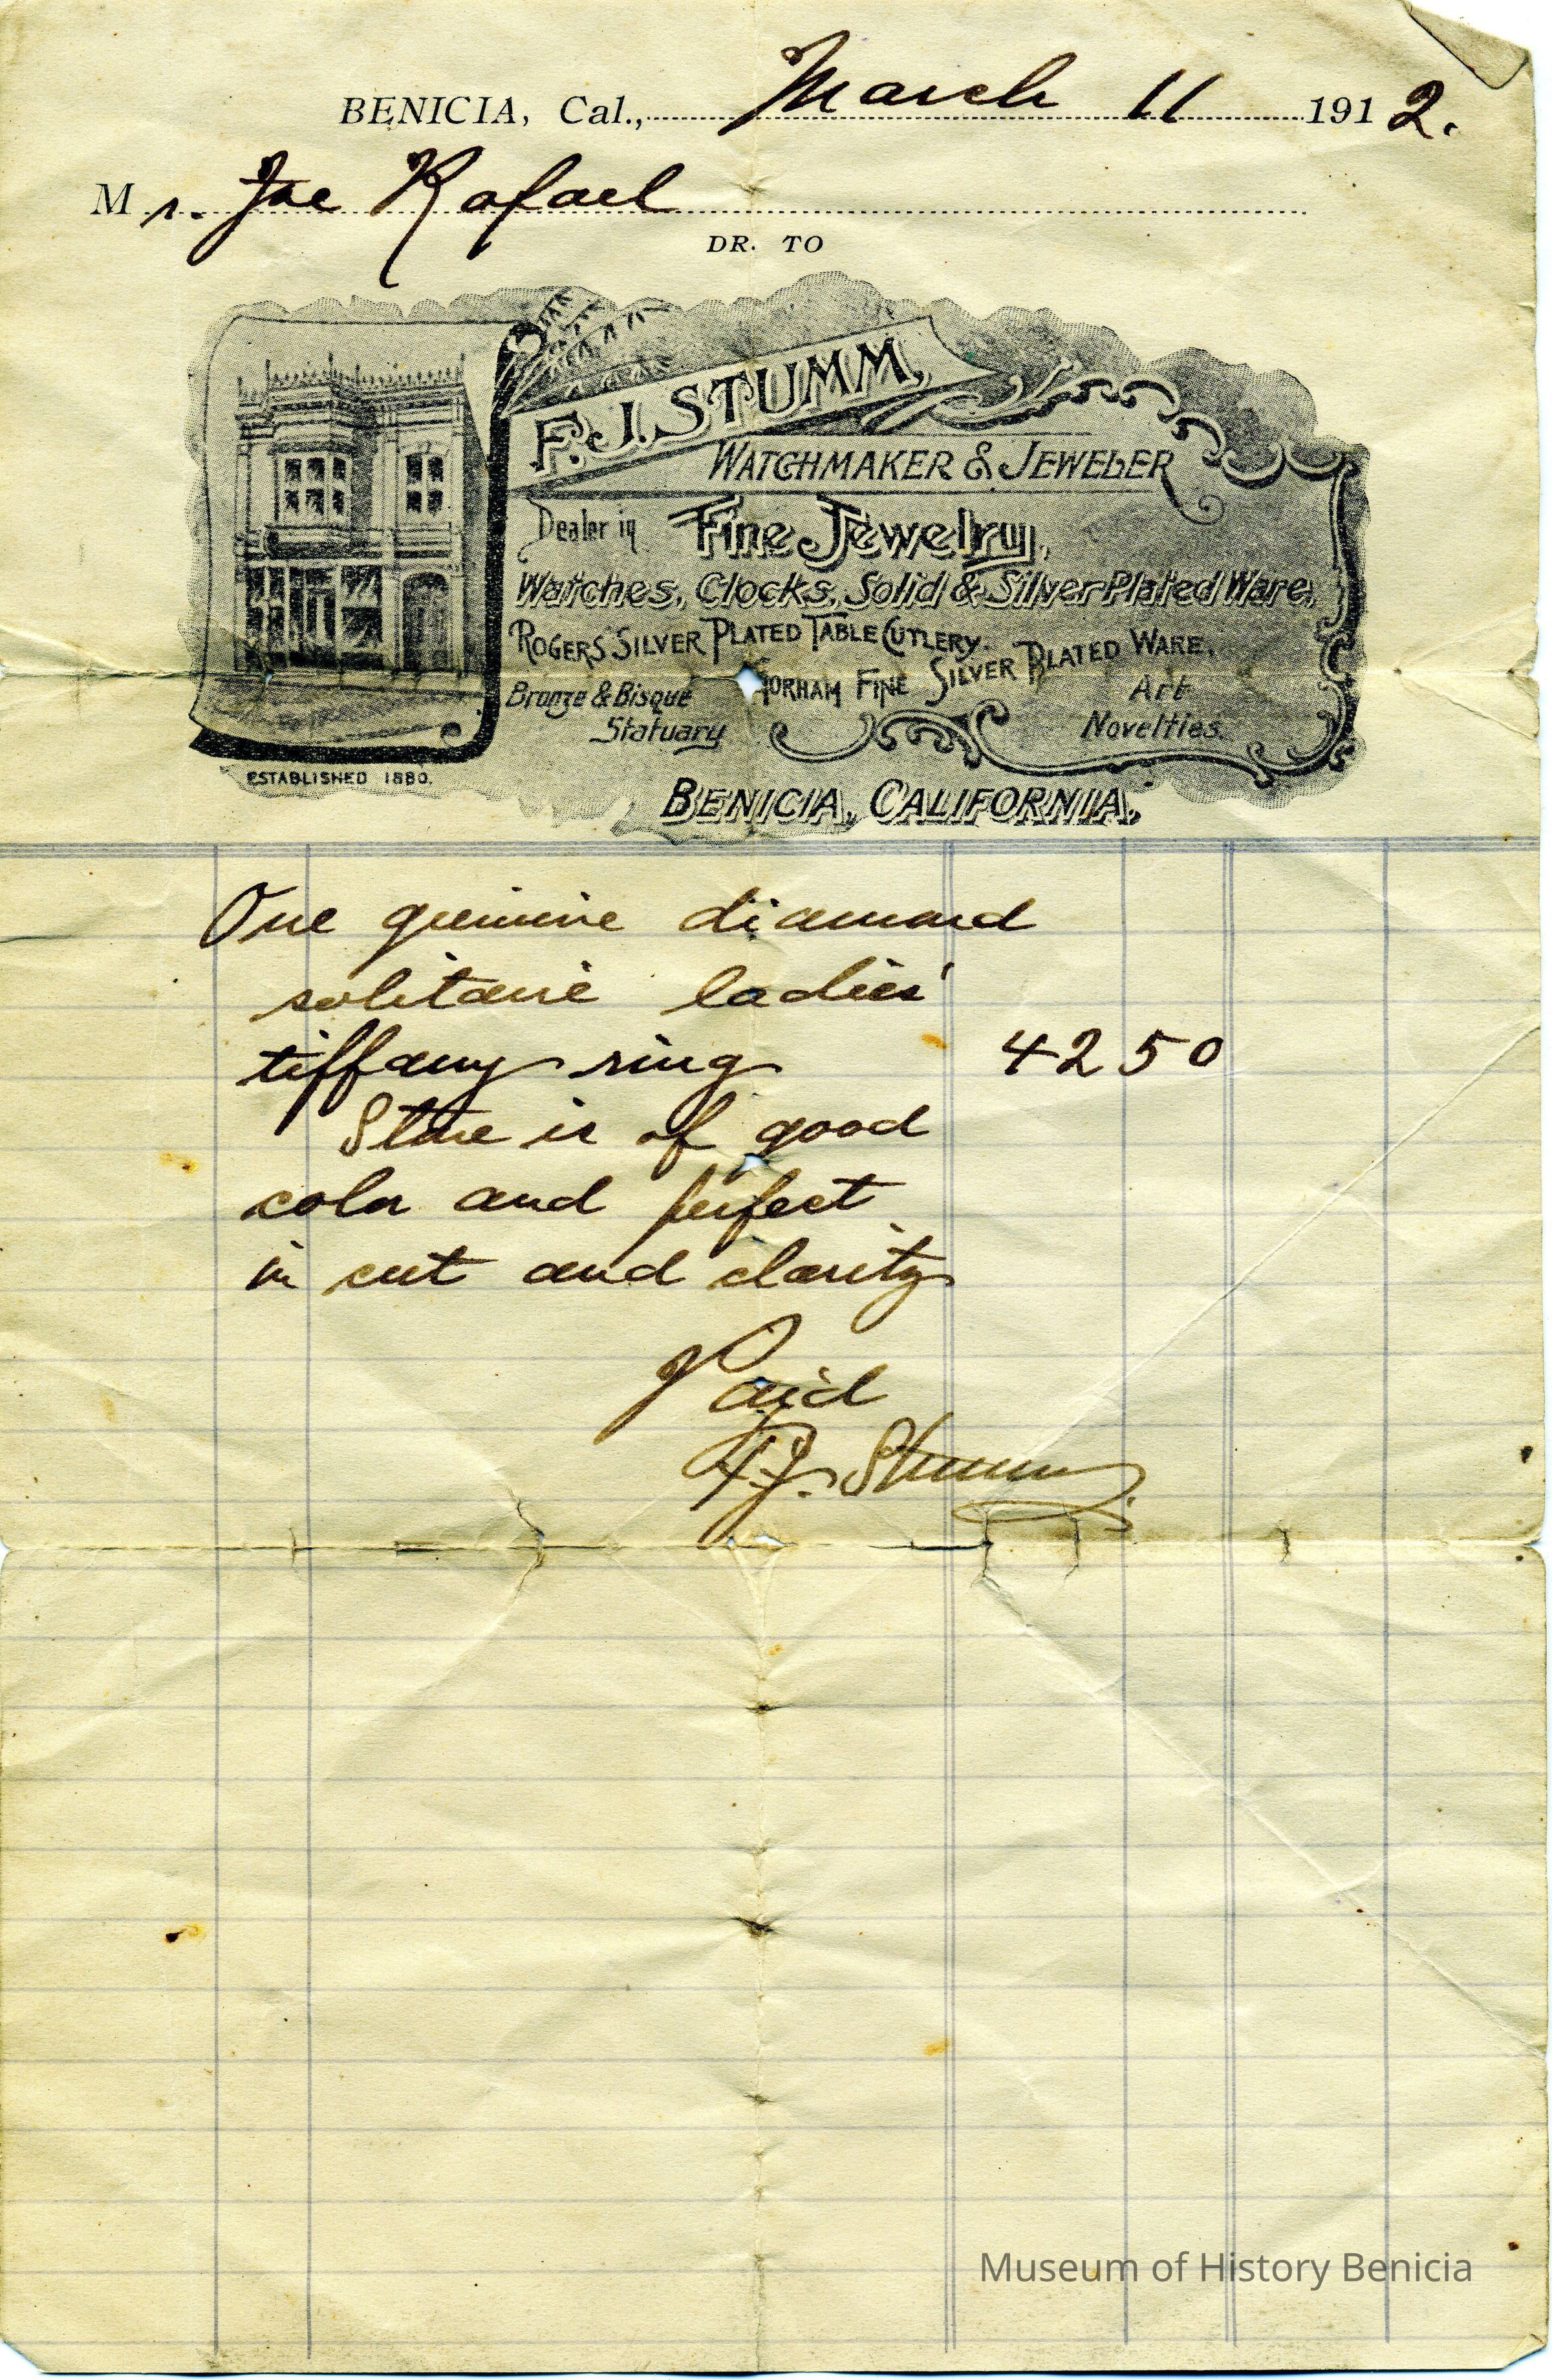 BENICIA, Cal., March 11 1912.
Mr. Joe Rafael
DR. TO
F. J. STUMM,
WATCHMAKER & JEWELER
Dealer in Fine Jewelry,
Watches, Clocks, Solid & Silver Plated Ware,
ROGERS' SILVER PLATED TABLE CUTLERY.
GORHAM FINE SILVER PLATED WARE.
Bronze & Bisque Statuary
Art Novelties.
ESTABLISHED 1880.
BENICIA, CALIFORNIA.
One genuine diamond
solitaire ladies'
tiffany ring 42 50
Stone is of good
color and perfect
in cut and clarity
Paid
F. J. Stumm
Museum of History Benicia